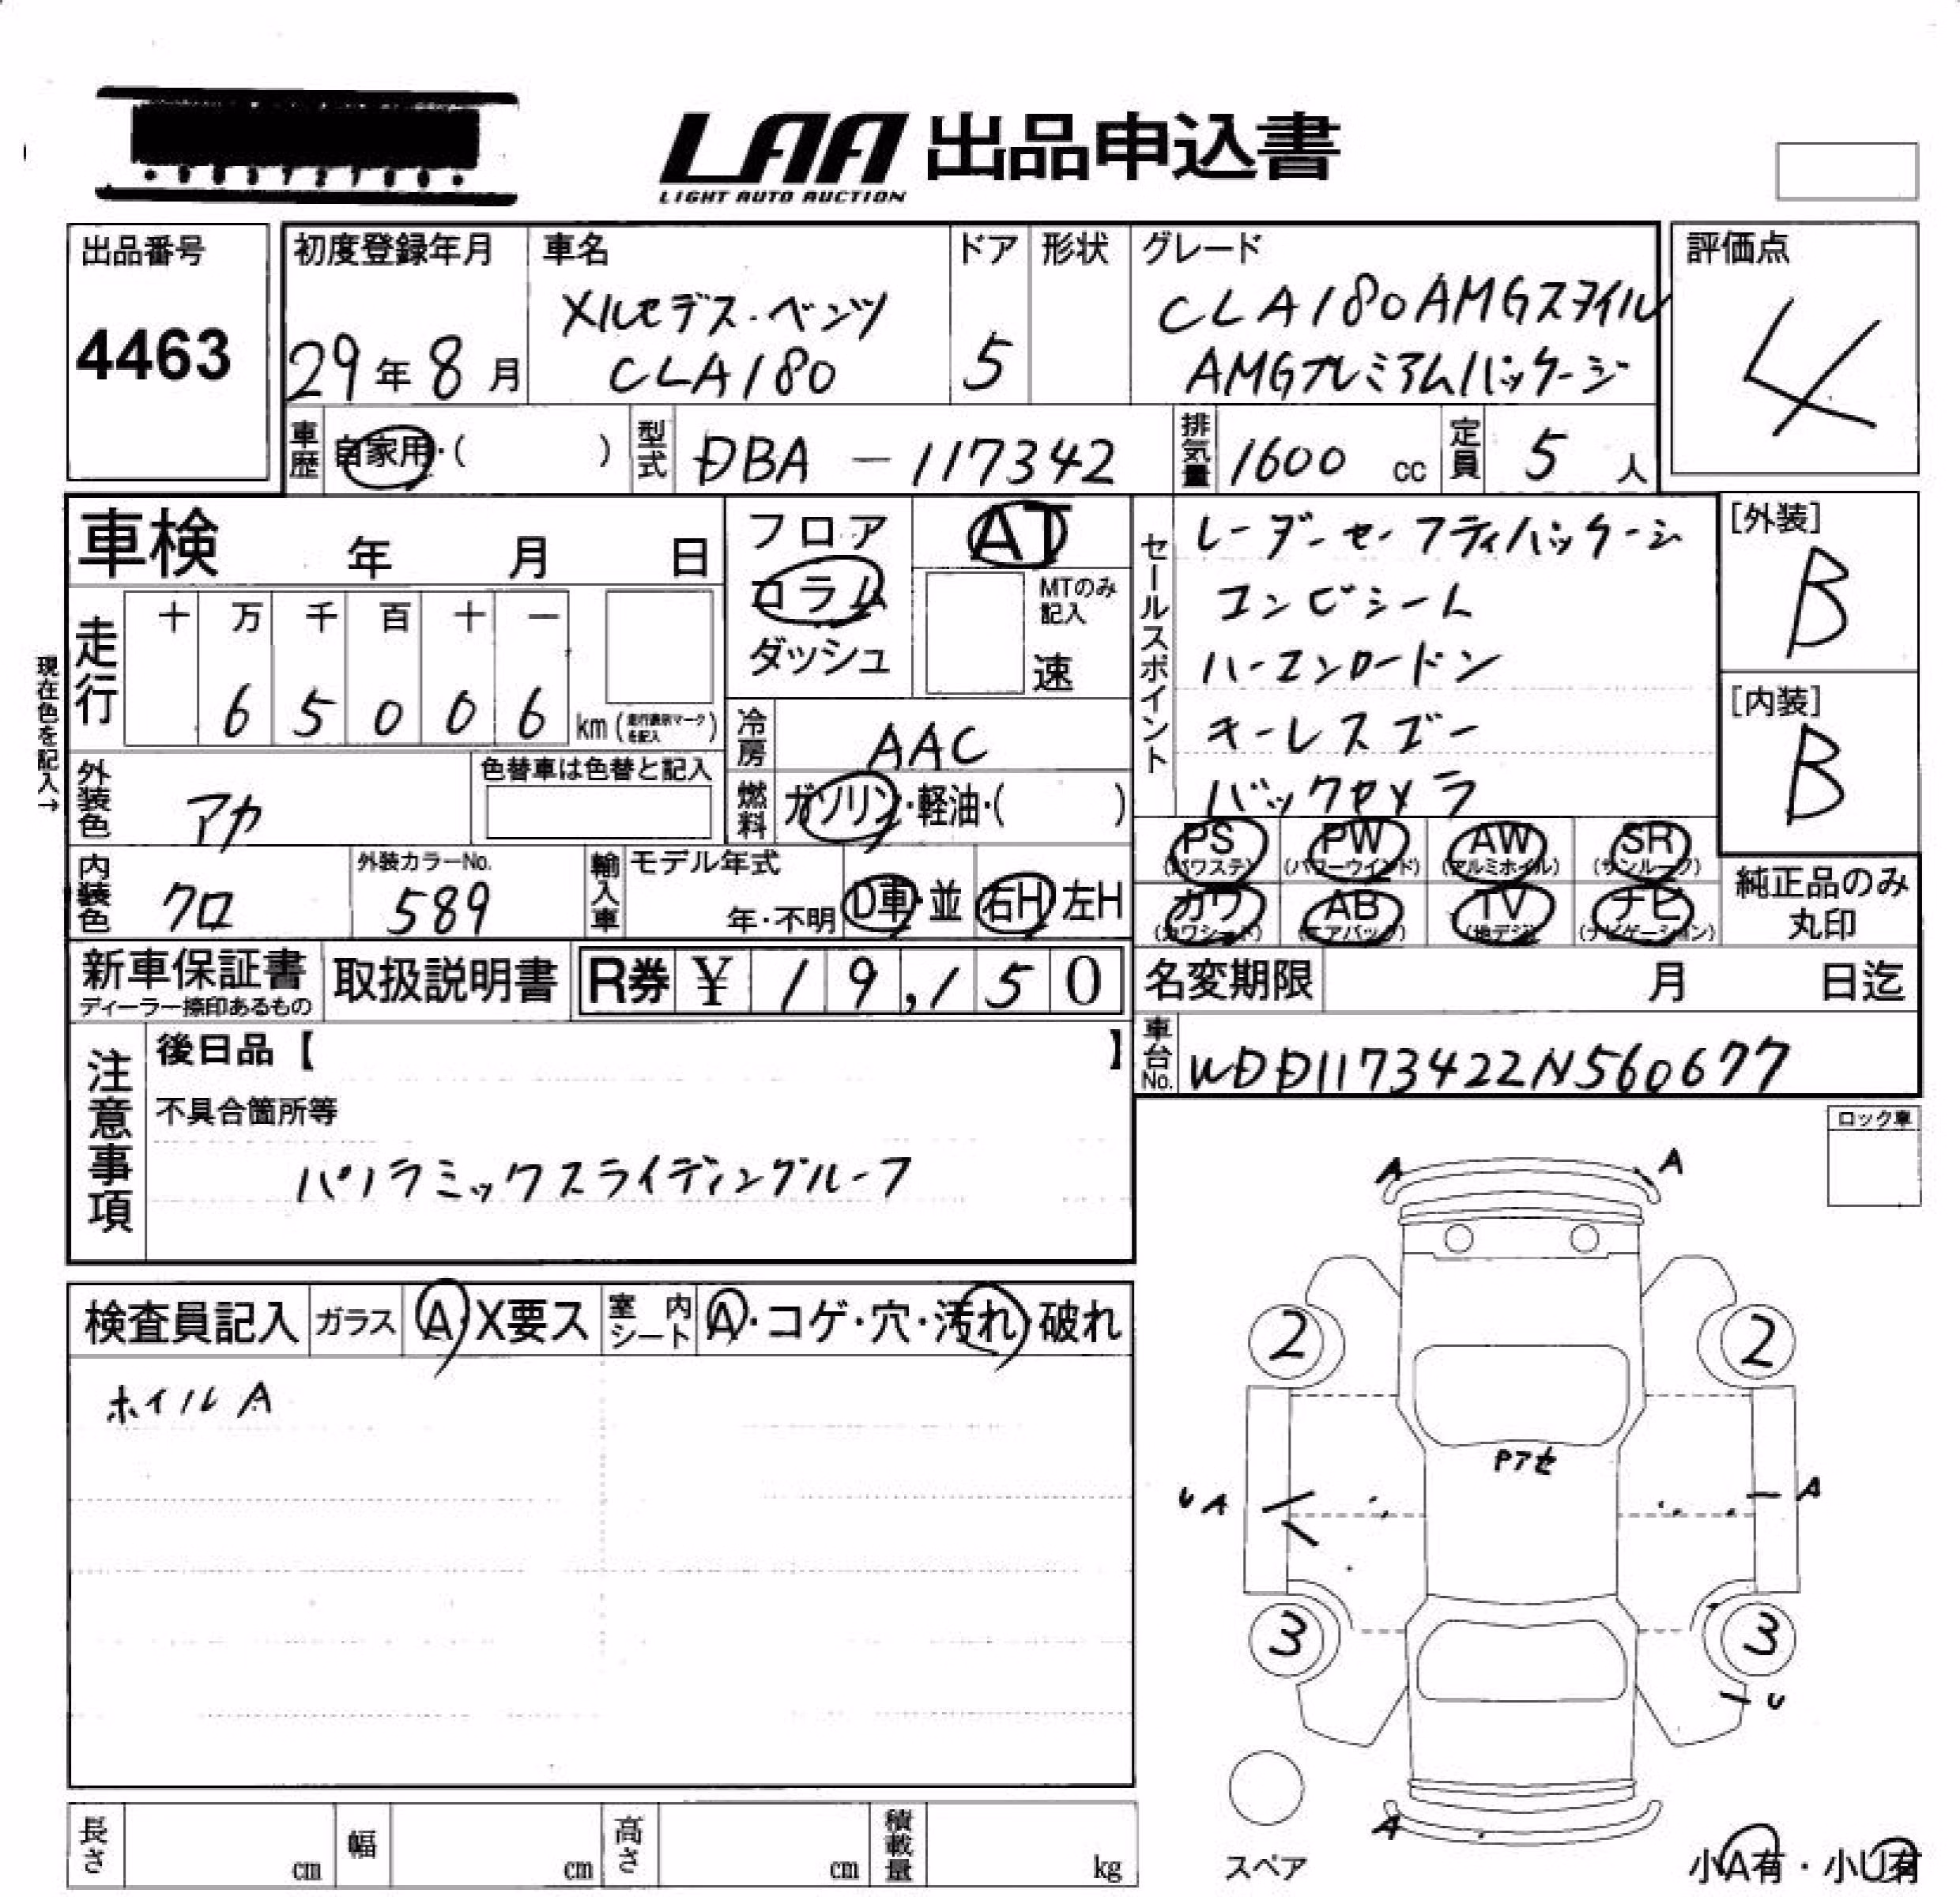 LAA 出品申込書
LIGHT AUTO AUCTION
出品番号
4463
初度登録年月
29年8月
車名
メルセデス・ベンツ
CLA180
ドア
5
形状
グレード
CLA180AMGスタイル
AMGプレミアムパッケージ
評価点
4
車歴 自家用・( )
型式 DBA-117342
排気量 1600 cc
定員 5 人
車検 年 月 日
フロア
コラム
ダッシュ
AT
MTのみ
記入
速
セールスポイント
レーダーセーフティパッケージ
コンビシート
ハーマンカードン
キーレスゴー
バックカメラ
[外装]
B
[内装]
B
現在色を記入→
走行
十 万 千 百 十 一
6 5 0 0 6 km (走行表示マークを記入)
冷房 AAC
燃料 ガソリン・軽油・( )
外装色 アカ
色替車は色替と記入
内装色 クロ
外装カラーNo.
589
輸入車
モデル年式
年・不明
D車・並
右H 左H
PS (パワステ)
PW (パワーウインド)
AW (アルミホイル)
SR (サンルーフ)
カワ (カワシート)
AB (エアバック)
TV (地デジ)
ナビ (ナビゲーション)
純正品のみ
丸印
新車保証書
ディーラー捺印あるもの
取扱説明書
R券 ¥ 19,150
名変期限 月 日迄
車台No. WDD1173422N560677
注意事項
後日品【 】
不具合箇所等
パノラミックスライディングルーフ
ロック車
検査員記入 ガラス A・X要ス
室内シート A・コゲ・穴・汚れ・破れ
ホイルA
A A
2 2
Pアセ
U A
A
3 3
U
A
スペア
小A有・小U有
長さ cm
幅 cm
高さ cm
積載量 kg